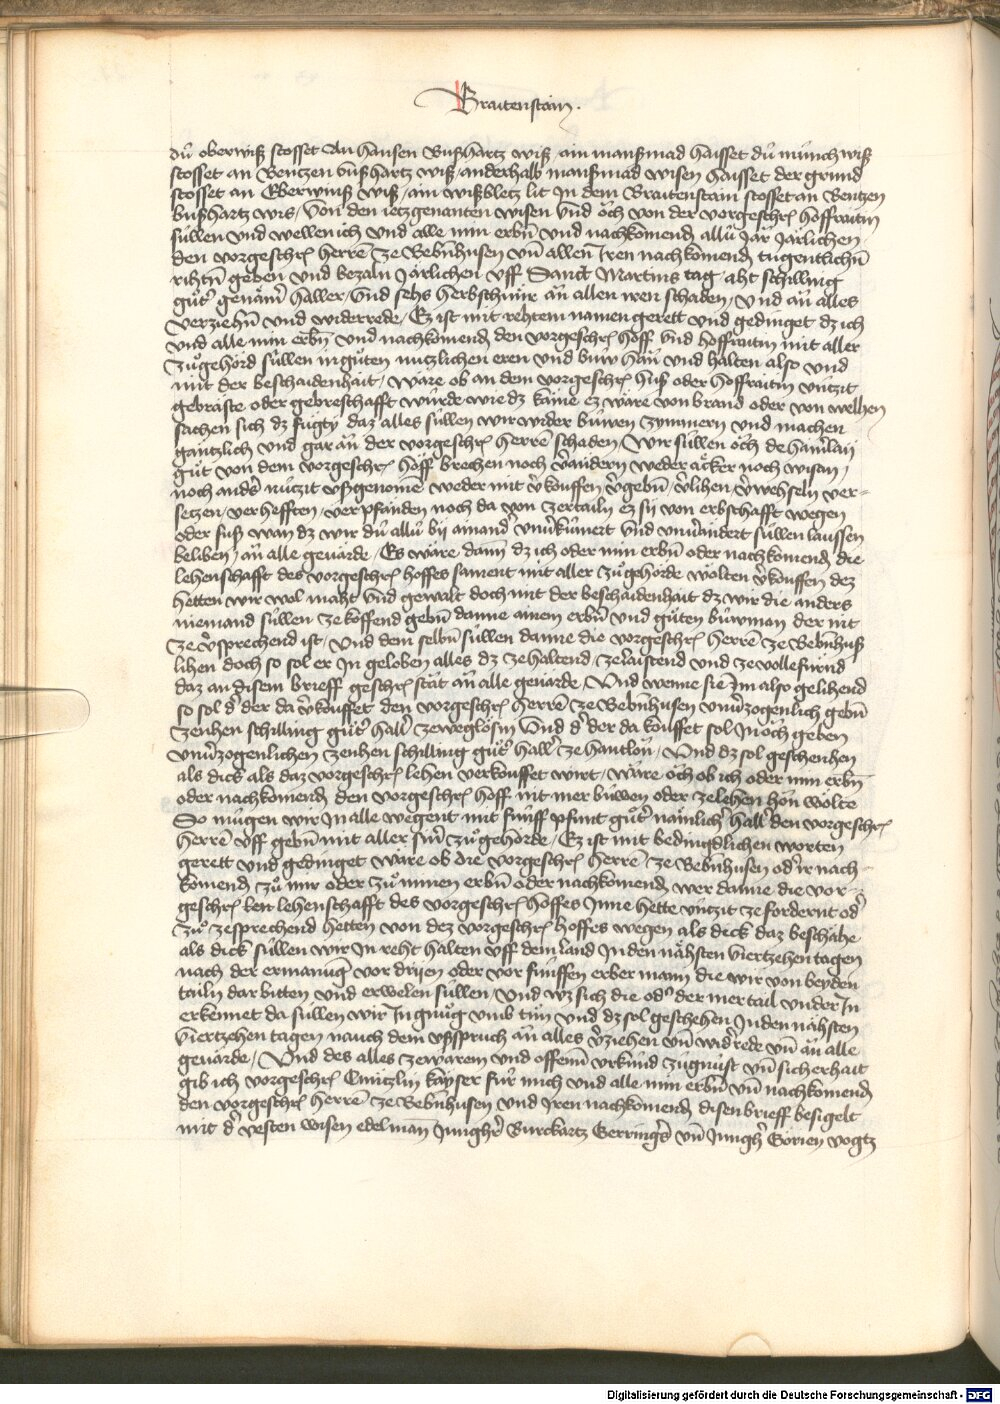 Braitenstain.
dü oberwiß stosset An hansen Bußhartz wiß / ain manßmad haisset dü münch wiß
stosset an Bentzen bußhartz wiß / anderhalb manßmad wisen haisset der grund
stosset an Eberwins wiß / ain wißbletz lit In dem Braitenstain stosset an Bentzen
bußhartz wis / Von den ietzgenanten wisen Vnd öch von der vorgeschrͤ hoffraitin
süllen vnd wellen ich vnd alle min erbn̄ vnd nachkomend allü Jar Järlichen
den vorgeschrͤ herrē ze Bebenhusen vn̄ allen Iren nachkomend tugentlichn̄
rihtn̄ geben vnd bezaln Järlichen vff Sanct Martins tag / aht schilling
gůter genämer haller / Vnd sehs herbsthůnr ān allen iren schaden / Vnd ān alles
verziehn̄ vnd widerrede / Ez ist mit rehtem namen gerett vnd gedinget dz ich
vnd alle min erbn̄ vnd nachkomend den vorgeschrͤ hoff vnd hoffraitin mit aller
zůgehörd süllen in gůten nutzlichen eren vnd buw han vnd halten also vnd
mit der beschaidenhait / wäre ob an dem vorgeschrͤ huß oder hoffraitin vntzit
gebräste oder gebresthafft würde wie dz käme ez wäre von brand oder von welhen
sachen sich dz fůgty daz alles süllen wir wider buwen zymmern vnd machen
gäntzlich vnd gar ān der vorgeschrͤ herrē schaden / Wir süllen öch dehainlaii
gůt von dem vorgeschrͤ hoff brechen noch v'andern weder äcker noch wisan /
noch anders nützit vßgenomē weder mit v'kouffen / v'gebn̄ / v'lihen / v'wehseln ver=
setzen / verhefften / verpfänden noch da von zertailn ez sij von erbschafft wegen
oder suß wan dz wir dü allü bij ainand' vnv'kümert vnd vnv'ändert süllen laussen
beliben / ān alle geuärde / Es wäre dann dz ich oder min erbn̄ oder nachkomend die
lehenschafft des vorgeschrͤ hoffes sament mit aller zůgehörde wölten v'kouffen dez
hetten wir wol maht vnd gewalt doch mit der beschaidenhait dz wir die anders
niemand süllen ze kouffend gebn̄ danne ainem erbn̄ vnd gůten buwman der nit
ze v'sprechend ist / Vnd dem selbn̄ süllen danne die vorgeschrͤ herrē ze Bebenhuß
lihen doch so sol er In geloben alles dz ze haltend / ze laistend vnd ze vollefürnd
daz an disem brieff geschrͤ stät ān alle geuärde / Vnd wenne sie Im also gelihend
so sol d' der da v'kouffet den vorgeschrͤ herrē ze Bebenhusen vnv'zogenlich gebn̄
zenhen schilling gůter haller ze weglösin Vnd d' der da kouffet sol In öch geben
vnv'zogenlichen zenhen schilling gůter haller ze hantlon / Vnd dz sol geschenhen
als dick als daz vorgeschrͤ lehen verkouffet wirt / wäre öch ob ich oder min erbn̄
oder nachkomend den vorgeschrͤ hoff nit mer buwen oder ze lehen hon wölte
So mugen wir In alle wegent mit fünff pfunt gůter nämlicher haller den vorgeschrͤ
herrē vff gebn̄ mit aller siner zůgehörde / Ez ist mit bedingdlichen worten
gerett vnd gedinget wäre ob die vorgeschrͤ herrē ze Bebenhusen od' ir nach=
komend zů mir oder zů minen erbn̄ oder nachkomend wer danne die vor=
geschrͤ lehenschafft des vorgeschrͤ hoffes Inne hette vntzit ze fordernt od'
zů zesprechend hetten von dez vorgeschrͤ hoffes wegen als dick daz beschähe
als dick süllen wir In reht halten vff dem land In den nähsten viertzehen tagen
nach der ermanung vor drijen oder vor fünffen erber mann die wir von beyden
tailn dar bitten vnd erwelen süllen / Vnd wz sich die od' der mertail vnder In
erkennet da süllen wir In gnůg vmb tůn vnd dz sol geschehen In den nähsten
viertzehen tagen nauch dem vßspruch ān alles v'ziehen vn̄ wid'rede vn̄ ān alle
geuärde / Vnd des alles ze warem vnd offenn vrkünd zügnüst vn̄ sicherhait
gib ich vorgeschrͤ Cuntzlin kayser für mich vnd alle min erbn̄ vn̄ nachkomend
den vorgeschrͤ herrē ze Bebenhusen vnd Iren nachkomend disen brieff besigelt
mit d' vesten wisen edelman Jungher Burckartz Gerringers vn̄ Jungher Görien vogtz
Digitalisierung gefördert durch die Deutsche Forschungsgemeinschaft - DFG